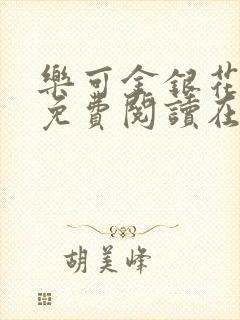 樂可金銀花
免費閱讀在
胡美峰